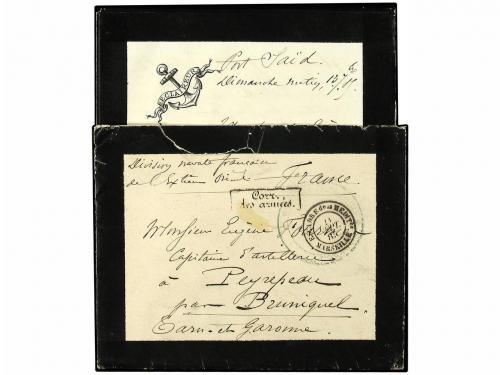 Port Saïd
Dimanche matin, 13
Division navale française
de l'Extrême Orient
France
Corr.
des armées.
MARSEILLE
Monsieur Eugène
Capitaine d'artillerie
à Peyrepeau
par Bruniquel
Tarn-et-Garonne.